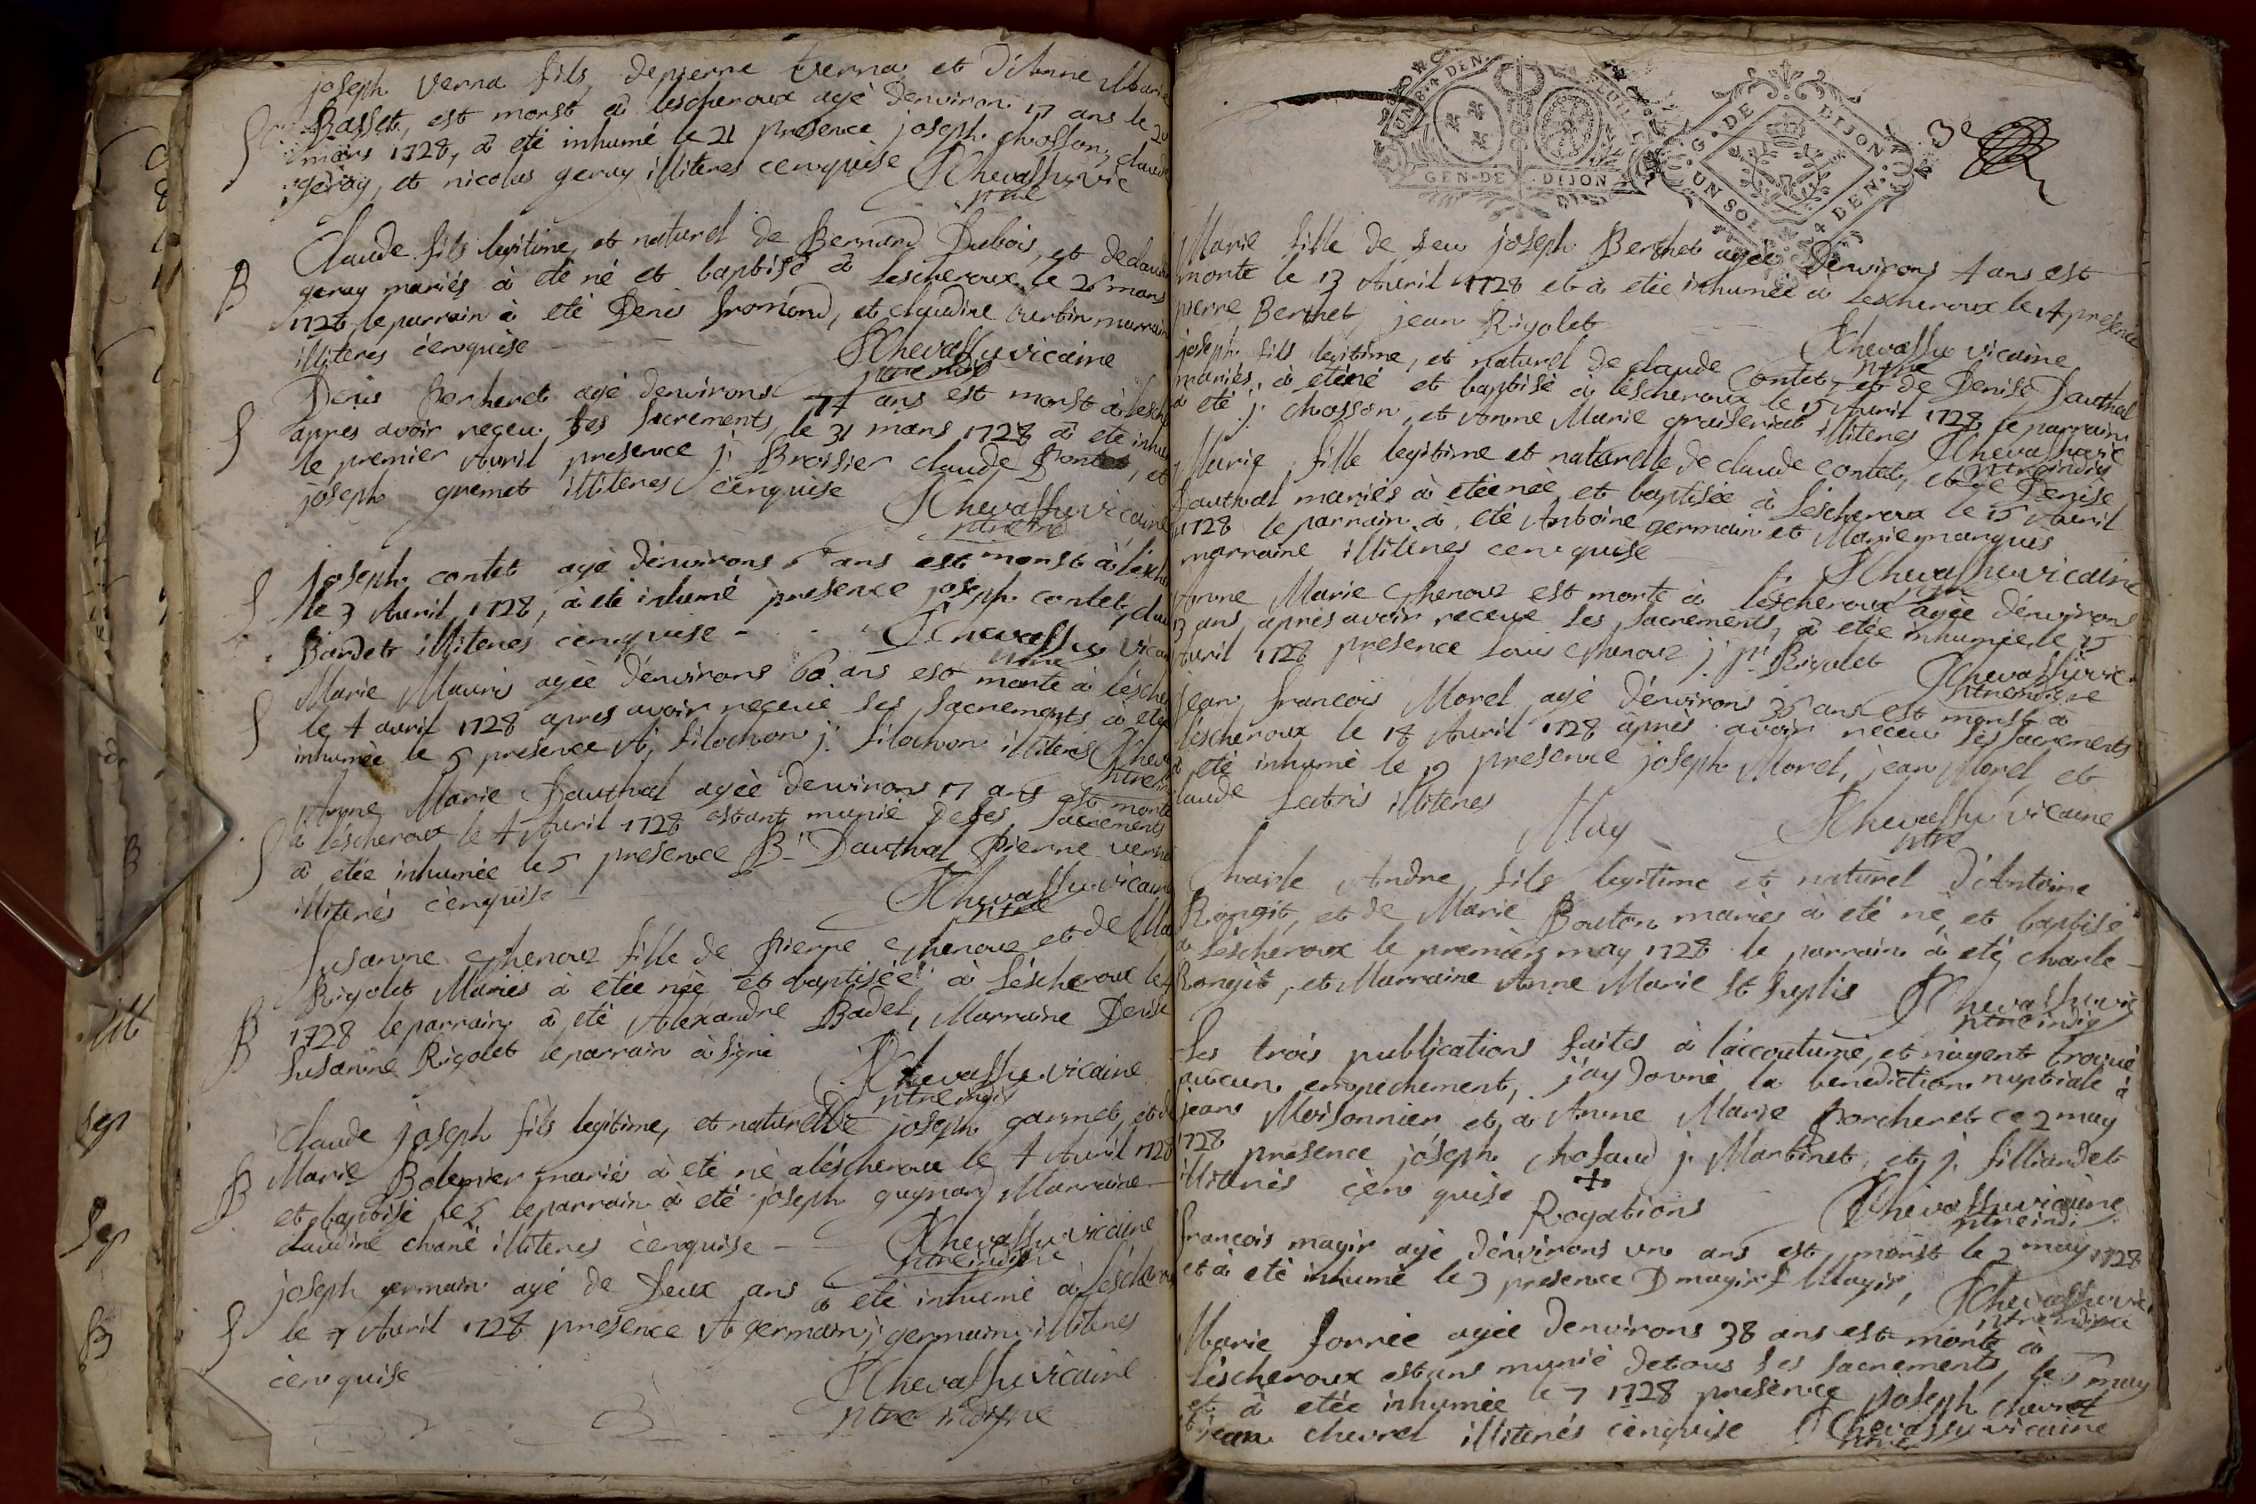 joseph Verna fils, depierre Verna et d'Anne Marie
Basset, est morst à lescheroux agé denviron 17 ans le 20
mars 1728, à eté inhumé le 21 presence joseph chosson, claude
geray, et nicolas geray illiteres cenquise JChevassu vic
ptre
B
Claude fils legitime, et naturel de Bernard Dubois, et declaude
geray mariés à eté né et baptisé à Lescheroux le 26 mars
1728 leparrain à eté Denis fromond, et claudine curtin marraine
illiteres cenquise JChevassu vicaire
ptre indig
S
Denis Porcheret agé denvirons 74 ans est morst à lesche
apres avoir receu ses sacrements, le 31 mars 1728 à eté inhu
le premier Avril presence j. Broisier claude Pontet, et
joseph gremet illiteres cenquise JChevassu vicaire
ptre ind
S
Joseph contet agé dénvirons 6 ans est morst à lésche
le 3 Avril 1728, à eté inhumé presence joseph contet, clau
Bardet illiteres cenquise JChevassu vicai
ptre
S
Marie Mauris agéé dénvirons 60 ans est morte à lésche
le 4 avril 1728 apres avoir receue ses sacrements à eté
inhumée le 5 presence A. filochon j. filochon illiteres JChev
ptre in
S
Anne Marie Dauthal agéé denvirons 17 ans est morte
à léscheroux le 4 Avril 1728 estant munie deses sacrements
à etée inhumée le 5 presence B. Dauthal Pierre verna
illiterés cénquise JChevassu vicaire
ptre
B
Susanne Chenoux fille de Pierre Chenoux et de Ma
Rigolet Mariés à etée née et baptisée à Léscheroux le 4
1728 leparrain à eté Alexandre Badel, Marraine Denise
Susanne Rigolet leparrain à signé
JChevassu vicaire
ptre indig
B
Claude joseph fils legitime, et naturel de joseph garmet, et d
Marie Bolemier mariés à eté né à léscheroux le 4 Avril 1728
et baptisé le 5 leparrain à eté joseph guynard Marraine
claudine chané illiteres cénquise JChevassu vicaire
ptre indigne
S
joseph germain agé de Deux ans à eté inhumé à Léschero
le 7 Avril 1728 presence A germain j. germain illiteres
cénquise
JChevassu vicaire
ptre indigne
GEN·DE DIJON
G·DE DIJON
UN SOL 4 DEN·
3e
Marie fille de feu joseph Berthet agéé denvirons 4 ans est
morte le 13 Avril 1728 et à etée inhumée à Lescheroux le 14 presence
pierre Berthet jean Rigolet JChevassu vicaire
ptre
joseph fils legitime, et naturel de claude Contet, et de Denise Dauthal
mariés, à eténé et baptisé à léscheroux le 15 Avril 1728 le parrain
à eté j. chosson, et Anne Marie graiseriat illiteres JChevassu vic
ptre indig
Marie, fille legitime et naturelle de claude contet, et de Denise
Dauthal mariés à etée née et baptisée à Léscheroux le 15 Avril
1728 leparrain à eté Antoine germain et Marie manguis
marraine illiteres cenquise JChevassu vicaire
ptre
Anne Marie Chenoux est morte à léscheroux agéé dénvirons
3 ans, apres avoir receue ses sacrements, à etée inhumée le 15
Avril 1728 presence Louis Chenoux j. p. Rigolet JChevassu vic.
ptre indigne
jean francois Morel agé dénvirons 36 ans est morst à
léscheroux le 18 Avril 1728 aprés avoir receu ses sacrements
à eté inhumé le 19 presence joseph Morel, jean Morel, et
claude Latris illiteres JChevassu vicaire
ptre
May
Charle Andre fils legitime et naturel d'Antoine
Rongit, et de Marie Bouton mariés à eté né, et baptisé
à léscheroux le premier may 1728 le parrain à eté charle
Rongit, et Marraine Anne Marie St Suplis JChevassu vic
ptre indig
Les trois publications faites à l'áccoutumé, et n'ayent troqué
aucun empechement, j'ay donné la benediction nuptiale à
jean Moisonnier et à Anne Marie Porcheret ce 2 may
1728 presence joséph Chosaud j. Martinet, et j. filliardet
illiterés cénquise JChevassu vicaire
ptre indi
Rogations
francois magir agé dénvirons un ans est morst le 2 may 1728
et à eté inhumé le 3 presence D magir f Magir, JChevassu vic.
ptre indigne
Marie forrée agéé denvirons 38 ans est morte à
léscheroux estans munie detous ses sacrements, le 5 may
et à etée inhumée le 7 1728 presence joseph chevrel
et jean chevrel illiterés cénquise JChevassu vicaire
ptre